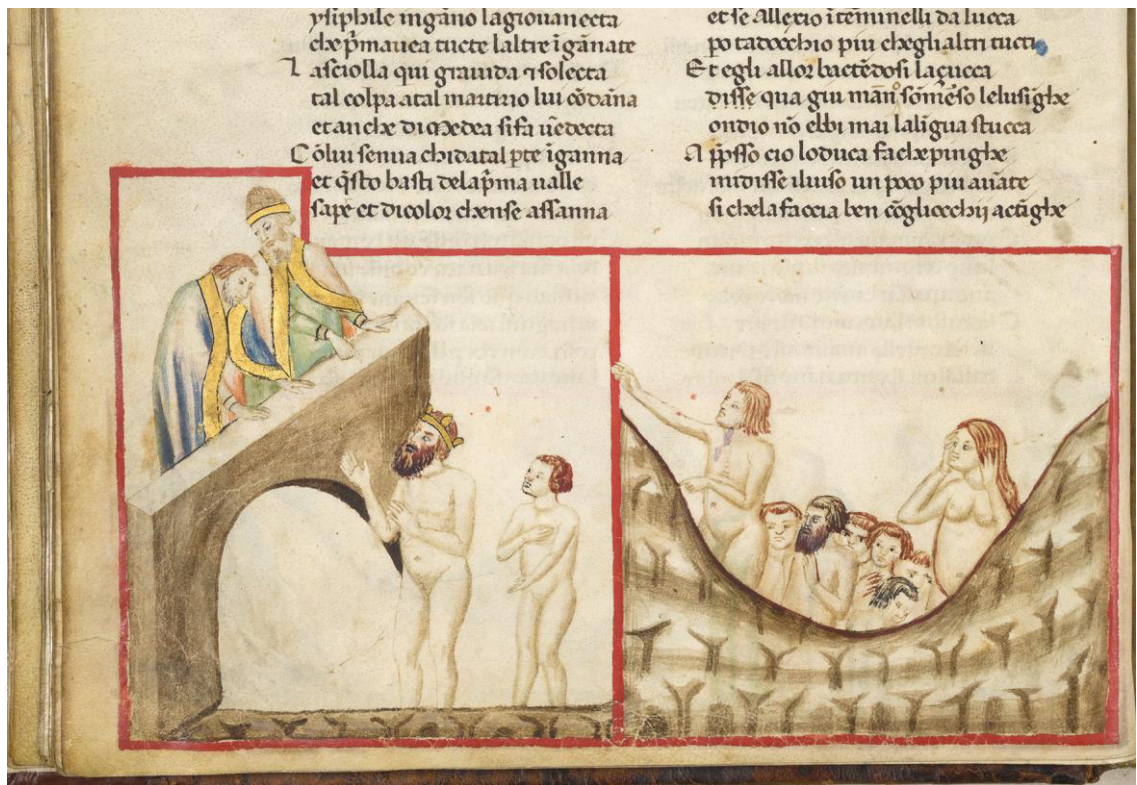 ysiphile ingāno lagiovanecta
che p̄mavea tucte laltre īgānate
L asciolla qui gravida ⁊ solecta
tal colpa atal martirio lui cōdāna
et anche di Medea sifa vēdecta
C ōlui senva chidatal pte īganna
et q̄sto basti delap̄ma valle
sapē et dicolor chense assanna
et se Allexio īteminelli da lucca
po tadocchio piu chegli altri tucti
E t egli allor bactēdosi laçucca
disse qua giu mān̊ somēso lelusīghe
ondio nō ebbi mai lalīgua stucca
A pp̄sso cio loduca fachepinghe
midisse ilviso un poco piu avāte
si chela faccia ben cōgliocchii actīghe